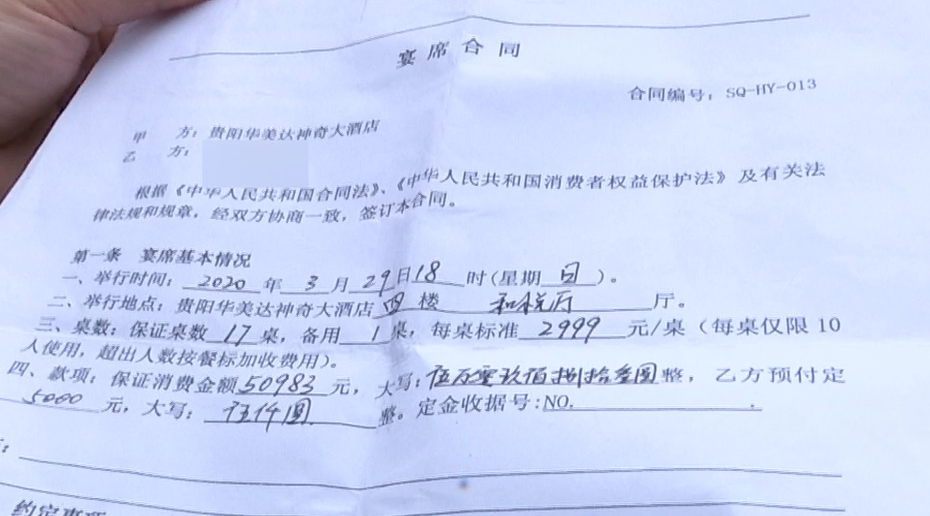 宴席合同
合同编号：SQ-HY-013
甲 方：贵阳华美达神奇大酒店
乙 方：
根据《中华人民共和国合同法》、《中华人民共和国消费者权益保护法》及有关法
律法规和规章，经双方协商一致，签订本合同。
第一条 宴席基本情况
一、举行时间：2020年3月29日18时(星期日)。
二、举行地点：贵阳华美达神奇大酒店四楼 和悦厅厅。
三、桌数：保证桌数17桌，备用1桌，每桌标准2999元/桌（每桌仅限10
人使用，超出人数按餐标加收费用）。
四、款项：保证消费金额50983元，大写：伍万零玖佰捌拾叁圆整，乙方预付定
5000元，大写：伍仟圆整。定金收据号:NO.
约定事项